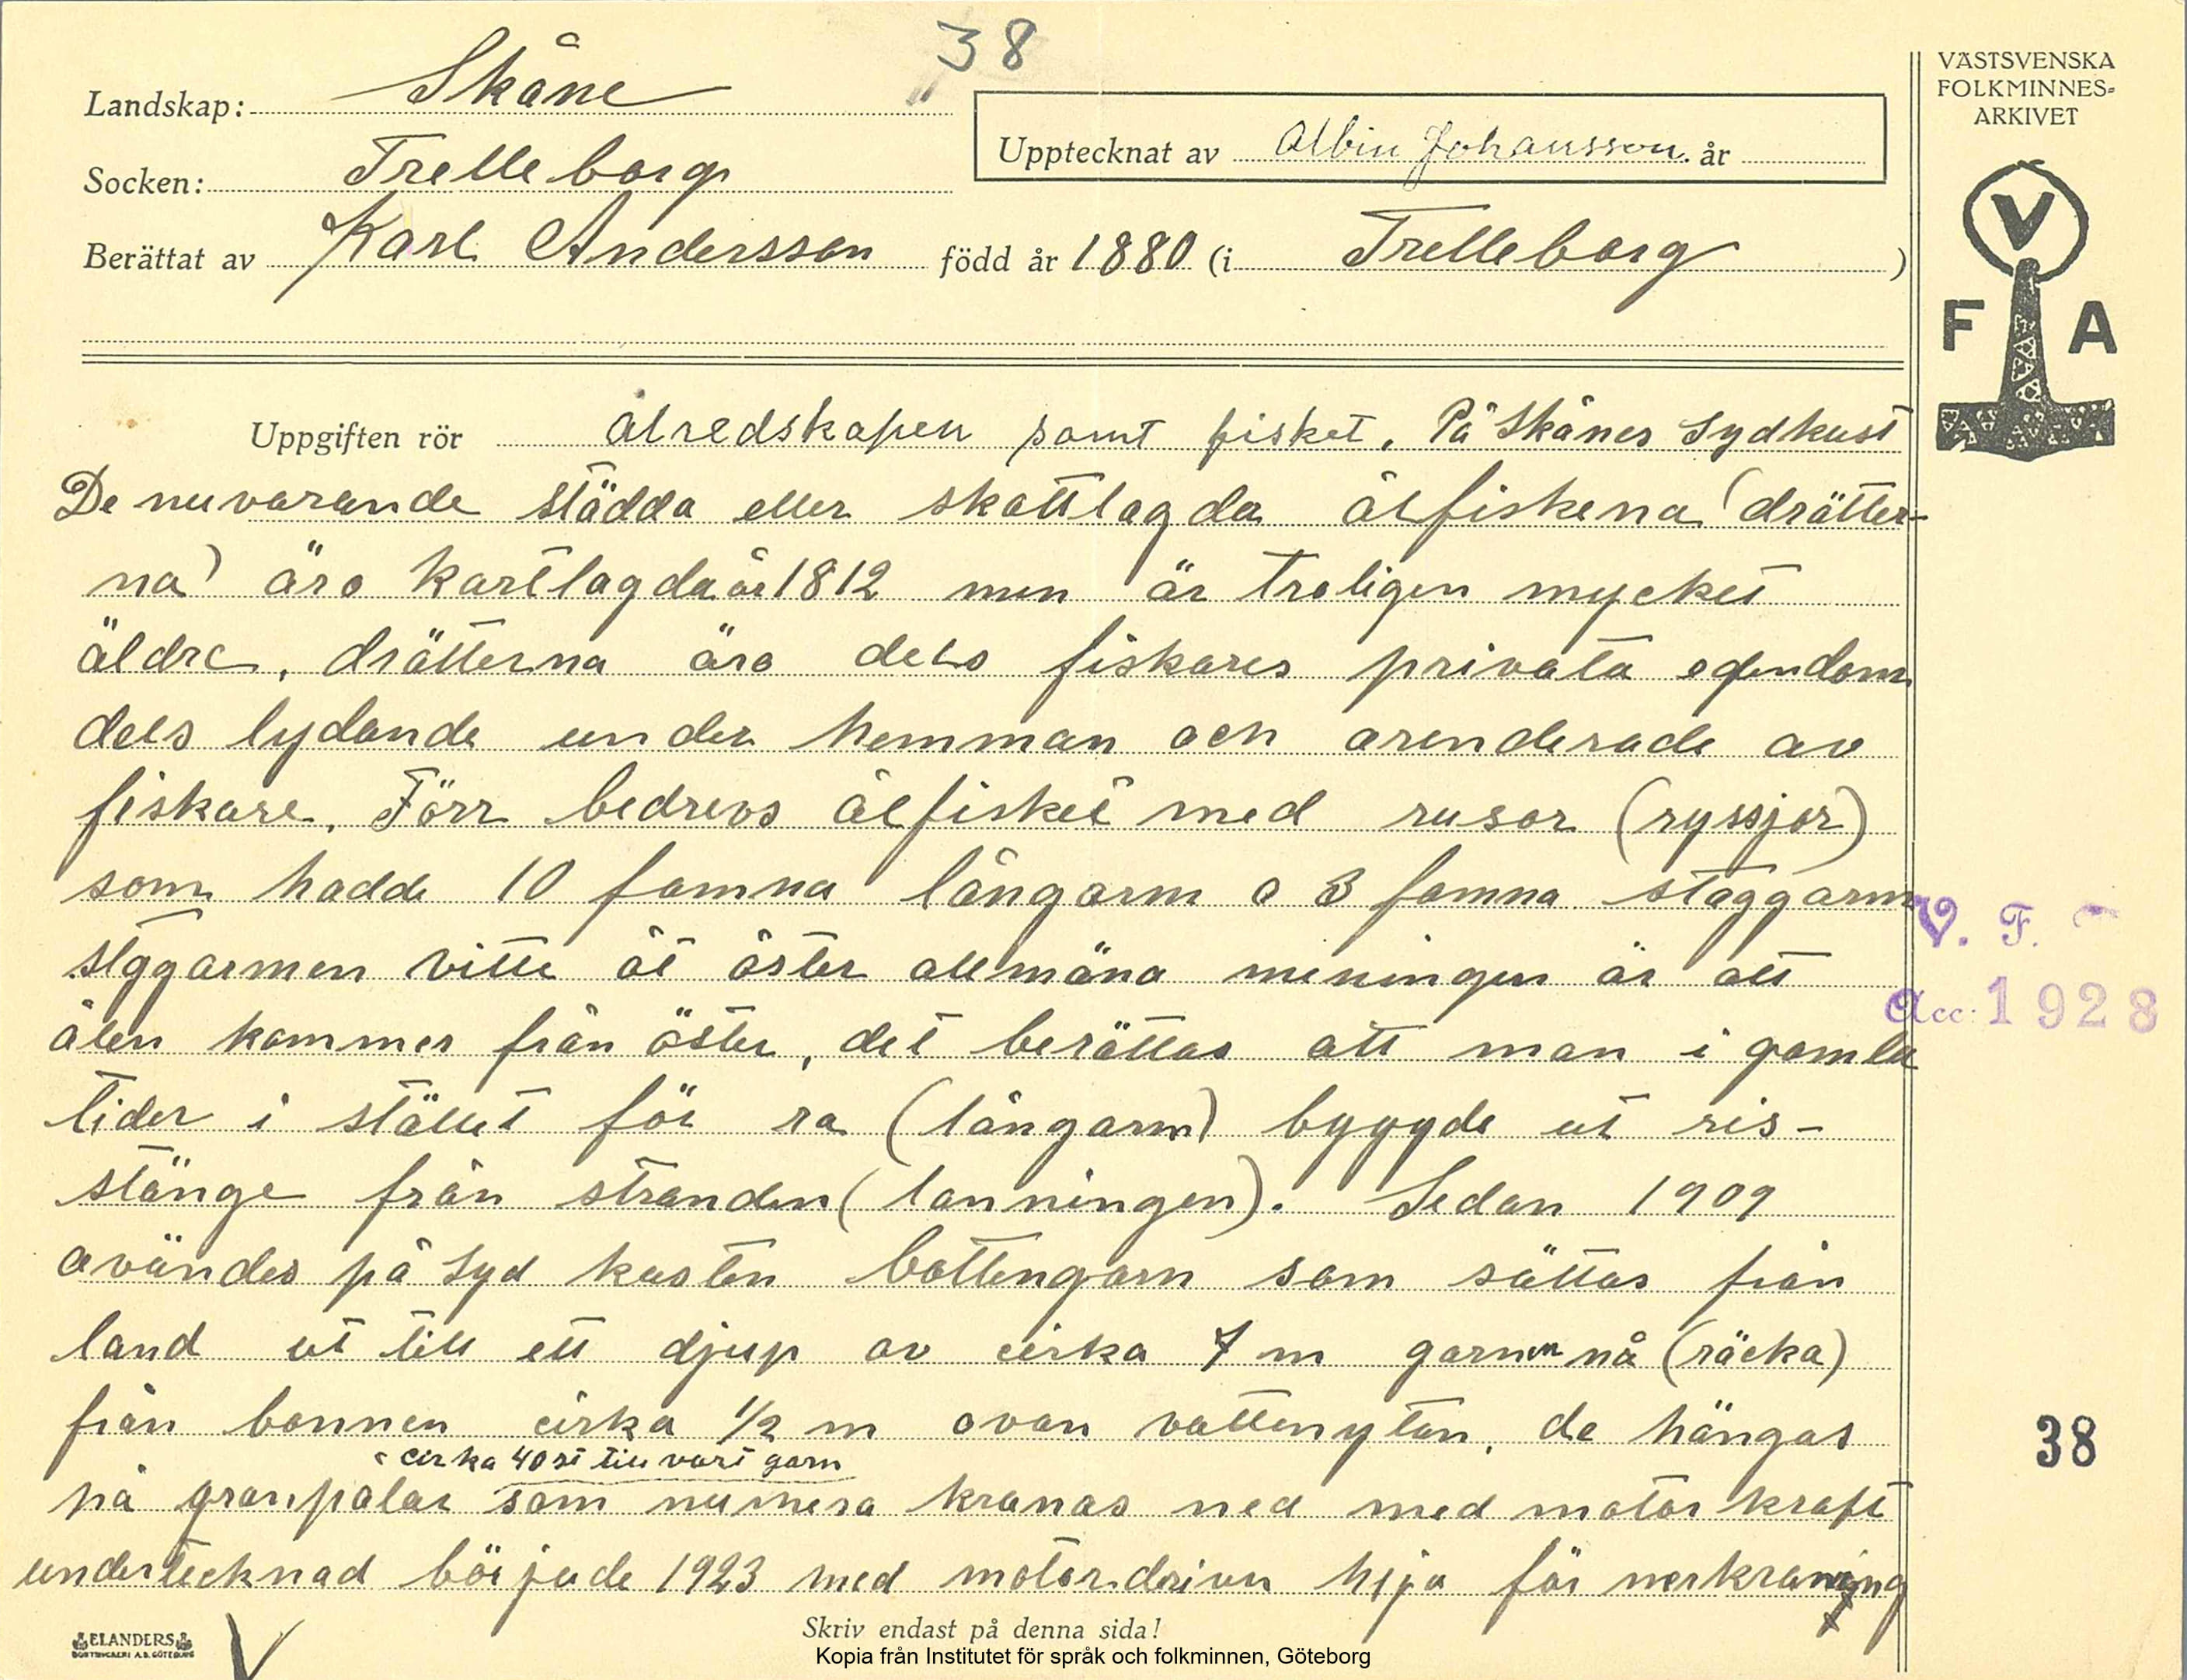 38
VÄSTSVENSKA
FOLKMINNES-
ARKIVET
Landskap: Skåne
Upptecknat av Albin Johansson. år
Socken: Trelleborg
Berättat av Karl Andersson född år 1880 (i Trelleborg )
V
F A
Uppgiften rör ålredskapen samt fisket. På Skånes Sydkust
De nuvarande städda eller skattlagda ålfiskena (drätter-
na) äro kartlagda år 1812 men är troligen mycket
äldre, drätterna äro dels fiskares privata egendom
dels lydande under hemman och arenderade av
fiskare. Förr bedrevs ålfisket med rusor (ryssjor)
som hadde 10 famna långarm o 3 famna staggarm
stggarmen vitte åt öster allmäna meningen är att
ålen kommer från öster, det berättas att man i gamla
tider i stället för ra (långarm) byggde ut ris-
stänge från stranden (lanningen). Sedan 1909
avändes på Syd kusten bottengarn som sättas från
land ut till ett djup av cirka 7 m garnen nå (räcka)
från bonnen cirka 1/2 m ovan vattenytan, de hängas
cirka 40 st till vart garn
på granpålar som numera kranas ned med motorkraft
undertecknad började 1923 med motordriven hjja för nerkraning
V. F.
Acc: 1928
38
Skriv endast på denna sida!
ELANDERS
BOKTRYCKERI A.B. GÖTEBORG
Kopia från Institutet för språk och folkminnen, Göteborg